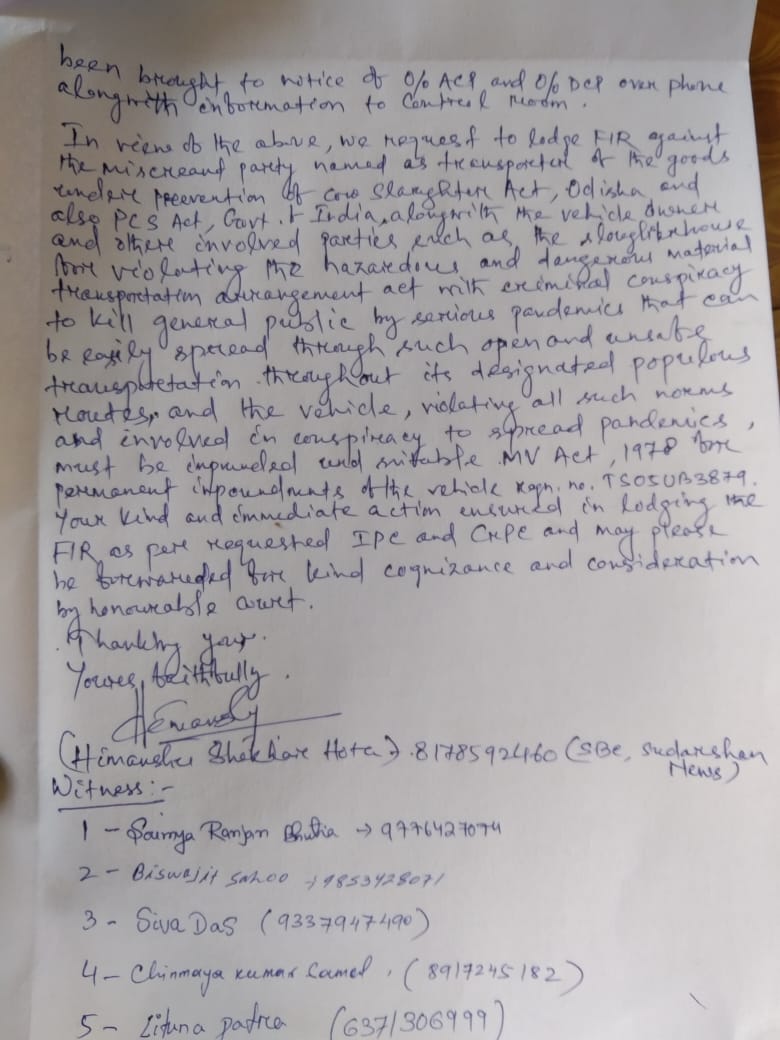 been brought to notice of O/o ACP and O/o DCP over phone
alongwith information to Control Room.
In view of the above, we request to lodge FIR against
the miscreant party named as transporter of the goods
under prevention of Cow Slaughter Act, Odisha and
also PCS Act, Govt. of India, alongwith the vehicle owner
and others involved parties such as the slaughterhouse
for violating the hazardous and dangerous material
transportation arrangement act with criminal conspiracy
to kill general public by serious pandemics that can
be easily spread through such open and unsafe
transportetation throughout its designated populous
routes, and the vehicle, violating all such norms
and involved in conspiracy to spread pandemics,
must be impounded and suitable MV Act, 1978 for
permanent impoundments of the vehicle regn. no. TS05UB3879.
Your kind and immediate action ensured in lodging the
FIR as per requested IPC and CRPC and may please
be forwareded for kind cognizance and consideration
by honourable court.
Thanking you.
Yours faithfully.
(Himanshu Shekhar Hota) 8178592460 (SBC, Sudarshan
News)
Witness:-
1 - Soumya Ranjan Bhutia → 9776427074
2 - Biswajit Sahoo → 9853428071
3 - Siva Das (9337947490)
4 - Chinmaya Kumar Samal. (8917245182)
5 - Lituna patra (6371306999)